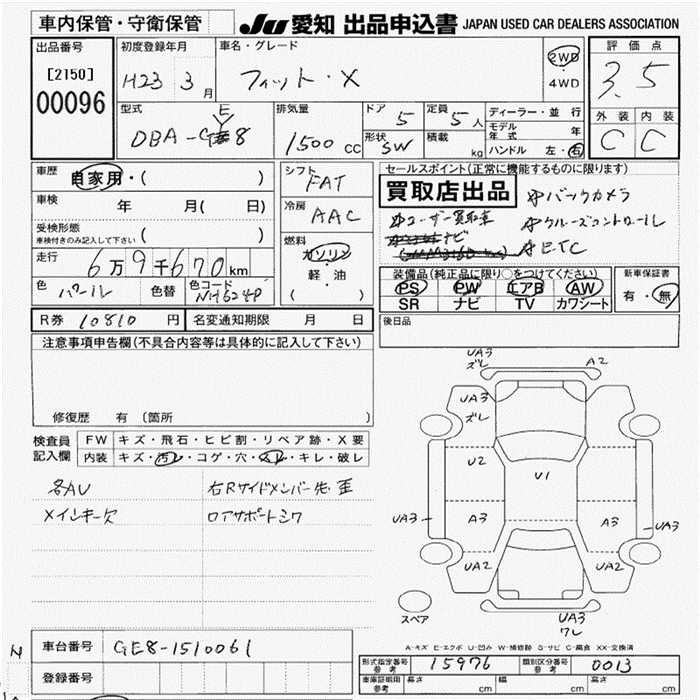 車内保管・守衛保管
JU 愛知 出品申込書 JAPAN USED CAR DEALERS ASSOCIATION
出品番号 [2150] 00096
初度登録年月 H23 3月
車名・グレード フィット・X
2WD・4WD
評価点 3.5
外装 内装
C C
型式 DBA-GE8
排気量 1500cc
ドア 5 定員 5人
形状 SW 積載 kg
ディーラー・並行
モデル年式 年
ハンドル 左・右
車歴 自家用・( )
車検 年 月( 日)
受検形態 ( )
車検付きのみ記入して下さい
走行 6万9千670km
色 パール 色替 色コード NH624P
シフト FAT
冷房 AAC
燃料 ガソリン・軽油 ( )
セールスポイント(正常に機能するものに限ります)
買取店出品
バックカメラ
ユーザー買取車
クルーズコントロール
ナビ
ETC
装備品(純正品に限り○をつけてください)
PS PW エアB AW
SR ナビ TV カワシート
新車保証書 有・無
R券 10810円 名変通知期限 月 日
後日品
注意事項申告欄(不具合内容等は具体的に記入して下さい)
修復歴 有 〔箇所 〕
検査員記入欄
FW キズ・飛石・ヒビ割・リペア跡・X要
内装 キズ・汚レ・コゲ・穴・スレ・キレ・破レ
各AU 右Rサイドメンバー先・歪
メインキー欠 ロアサポートミワ
UA3 ズレ A2
UA3 ズレ
U2 U1
UA3 A3 A3 UA3
UA2 UA2
スペア UA3 ワレ
A-キズ E-エクボ U-凹み W-補修跡 S-サビ C-腐食 XX-交換済
車台番号 GE8-1510061
登録番号
形式指定番号 参考 15976 類別区分番号 参考 0013
車庫証明用 参考 長さ cm 幅 cm 高さ cm